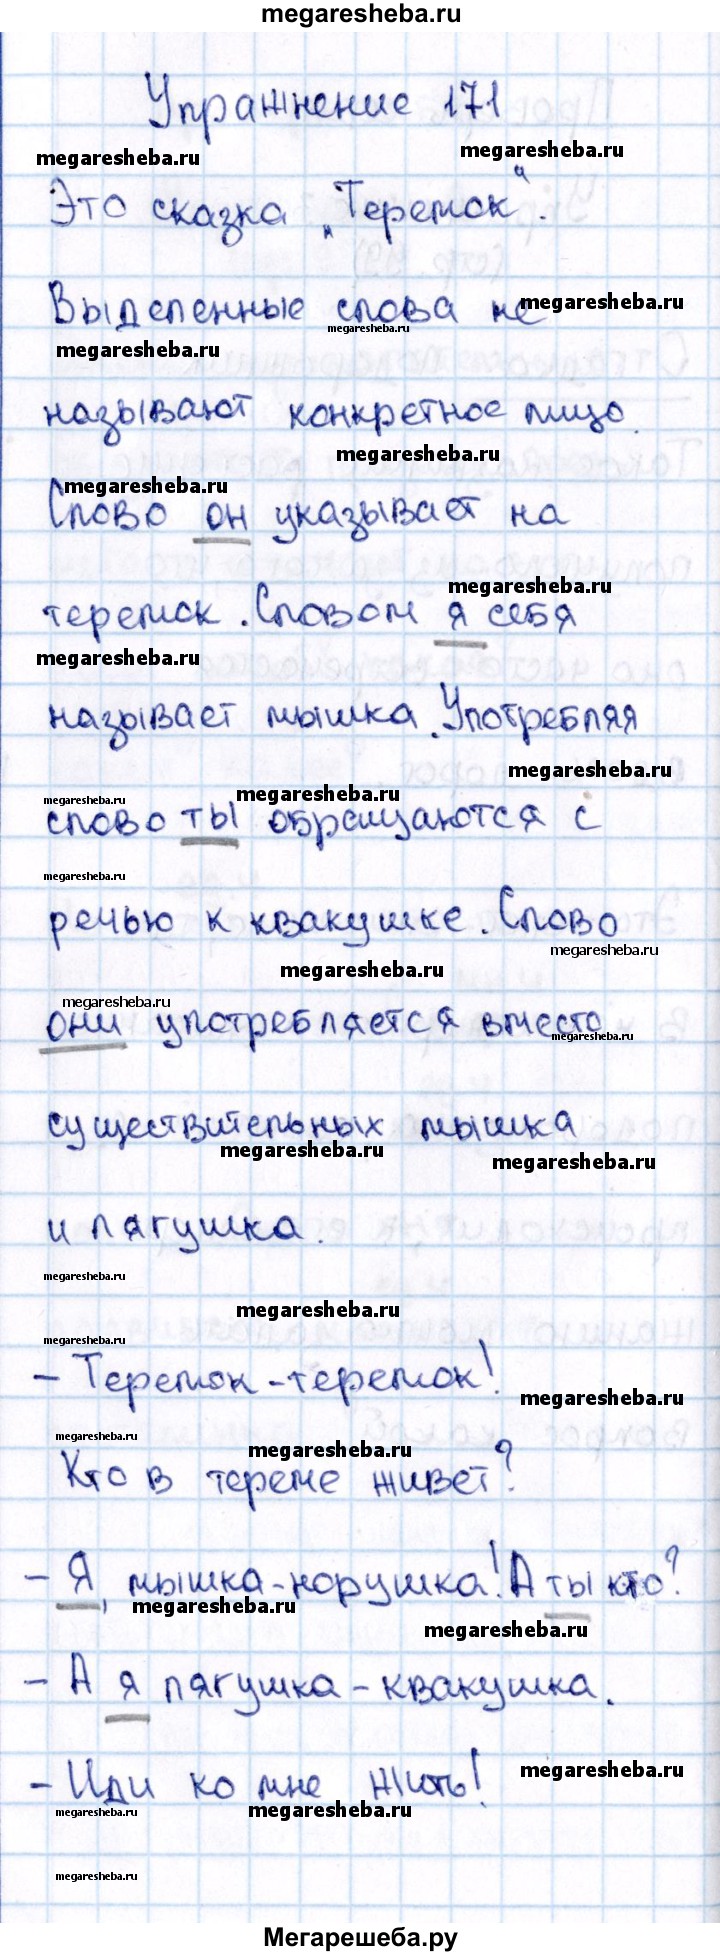 megaresheba.ru
Упражнение 171
megaresheba.ru
megaresheba.ru
Это сказка „Теремок“.
Выделенные слова не
megaresheba.ru
megaresheba.ru
megaresheba.ru
называют конкретное лицо.
megaresheba.ru
megaresheba.ru
Слово он указывает на
megaresheba.ru
теремок. Словом я себя
megaresheba.ru
называет мышка. Употребляя
megaresheba.ru
megaresheba.ru
megaresheba.ru
слово ты обращаются с
megaresheba.ru
речью к квакушке. Слово
megaresheba.ru
megaresheba.ru
megaresheba.ru
они употребляется вместо
megaresheba.ru
существительных мышка
megaresheba.ru
megaresheba.ru
и лягушка.
megaresheba.ru
megaresheba.ru
megaresheba.ru
- Теремок-теремок!
megaresheba.ru
megaresheba.ru
megaresheba.ru
Кто в тереме живет?
- Я, мышка-норушка! А ты кто?
megaresheba.ru
megaresheba.ru
- А я лягушка-квакушка.
- Иди ко мне жить!
megaresheba.ru
megaresheba.ru
megaresheba.ru
megaresheba.ru
Мегарешеба.ру